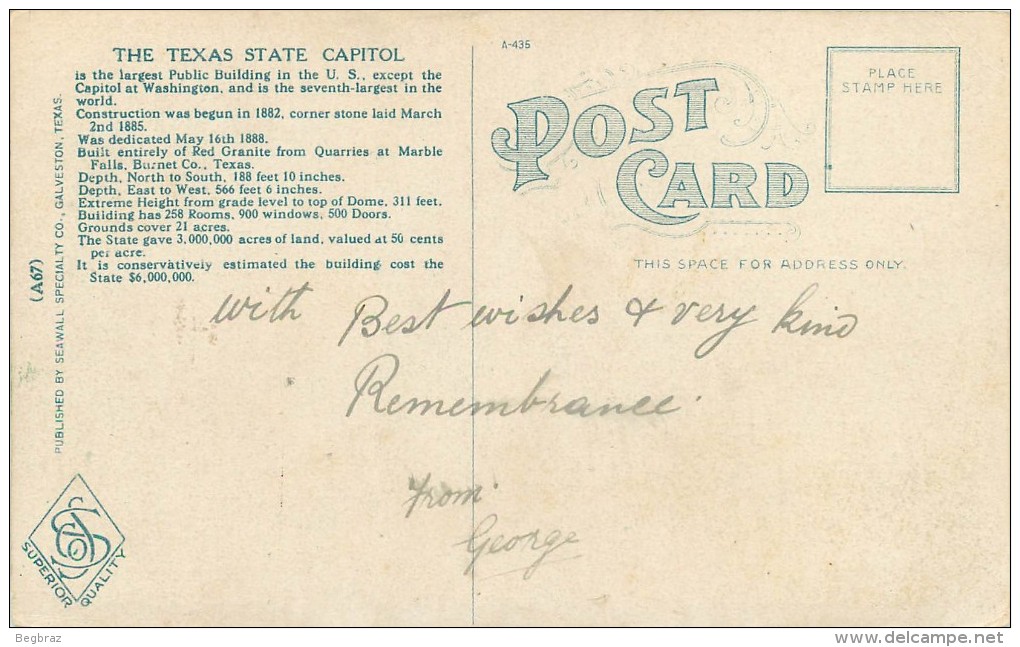 THE TEXAS STATE CAPITOL
is the largest Public Building in the U. S., except the
Capitol at Washington, and is the seventh-largest in the
world.
Construction was begun in 1882, corner stone laid March
2nd 1885.
Was dedicated May 16th 1888.
Built entirely of Red Granite from Quarries at Marble
Falls, Burnet Co., Texas.
Depth, North to South, 188 feet 10 inches.
Depth, East to West, 566 feet 6 inches.
Extreme Height from grade level to top of Dome, 311 feet.
Building has 258 Rooms, 900 windows, 500 Doors.
Grounds cover 21 acres.
The State gave 3,000,000 acres of land, valued at 50 cents
per acre.
It is conservatively estimated the building cost the
State $6,000,000.
(A67)
PUBLISHED BY SEAWALL SPECIALTY CO., GALVESTON, TEXAS.
A-435
POST
CARD
PLACE
STAMP HERE
THIS SPACE FOR ADDRESS ONLY.
with Best wishes & very kind
Remembrance.
From
George
SUPERIOR QUALITY
Begbraz
www.delcampe.net